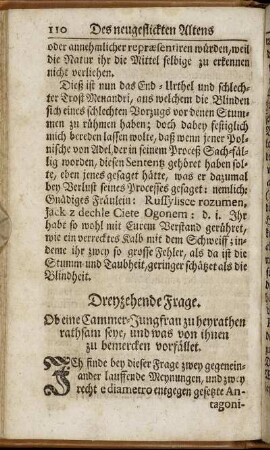 110 Des neugeflickten Altens
oder annehmlicher repræsentiren würden, weil
die Natur ihr die Mittel selbige zu erkennen
nicht verliehen.
Dieß ist nun das End-Urthel und schlech-
ter Trost Menandri, aus welchem die Blinden
sich eines schlechten Vorzugs vor denen Stum-
men zu rühmen haben; doch dabey festiglich
mich bereden lassen wolte, daß wenn jener Pol-
nische von Adel, der in seinem Proceß Sach-fäl-
lig worden, diesen Sententz gehöret haben sol-
te, eben jenes gesaget hätte, was er dazumal
bey Verlust seines Processes gesaget: nemlich:
Gnädiges Fräulein: Russylisce rozumen,
Jack z dechle Ciete Ogonem: d. i. Ihr
habt so wohl mit Eurem Verstand gerühret,
wie ein verrecktes Kalb mit dem Schweiff; in-
deme ihr zwey so grosse Fehler, als da ist die
Stumm und Taubheit, geringer schätzet als die
Blindheit.
Dreyzehende Frage.
Ob eine Cammer-Jungfrau zu heyrathen
rathsam seye, und was von ihnen
zu bemercken vorfället.
ICh finde bey dieser Frage zwey gegenein-
ander lauffende Meynungen, und zwey
recht e diametro entgegen gesetzte An-
tagoni-